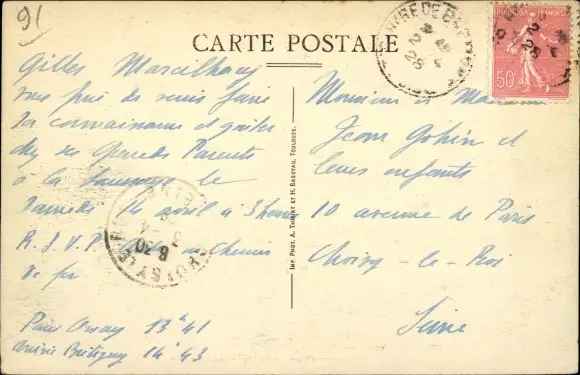 91
CARTE POSTALE
Gilles Marcilhacy
vous prie de venir faire
sa connaissance et goûter
chez ses Grands Parents
à la le
Samedi 14 avril à 3 heures
R.S.V.P. Chemin
de fer
Paris Orsay 13h 41
arrivée Brétigny 14h 43
IMP. PHOT. A. THIRIAT ET H. BASUYAU, TOULOUSE.
50c
Monsieur et Madame
Jean Gohin et
leurs enfants
10 avenue de Paris
Choisy-le-Roi
Seine
CHOISY
SEINE